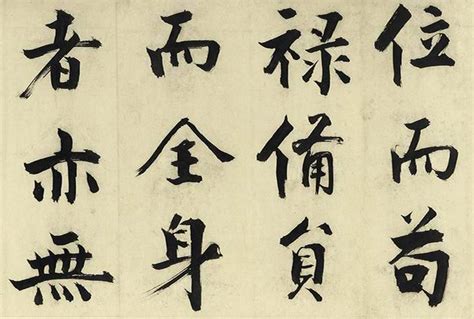 位而苟
禄備員
而全身
者亦無